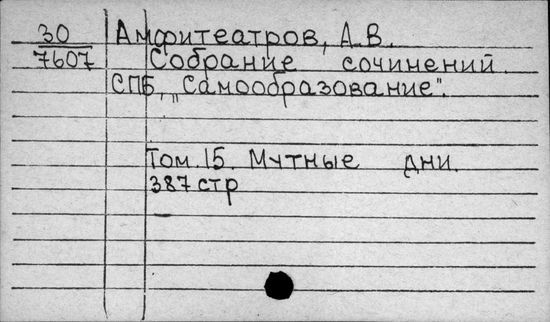 30 Амфитеатров, А.В.
7607 Собрание сочинений.
СПБ, „Самообразование".
Том 15. Мутные дни.
387 стр